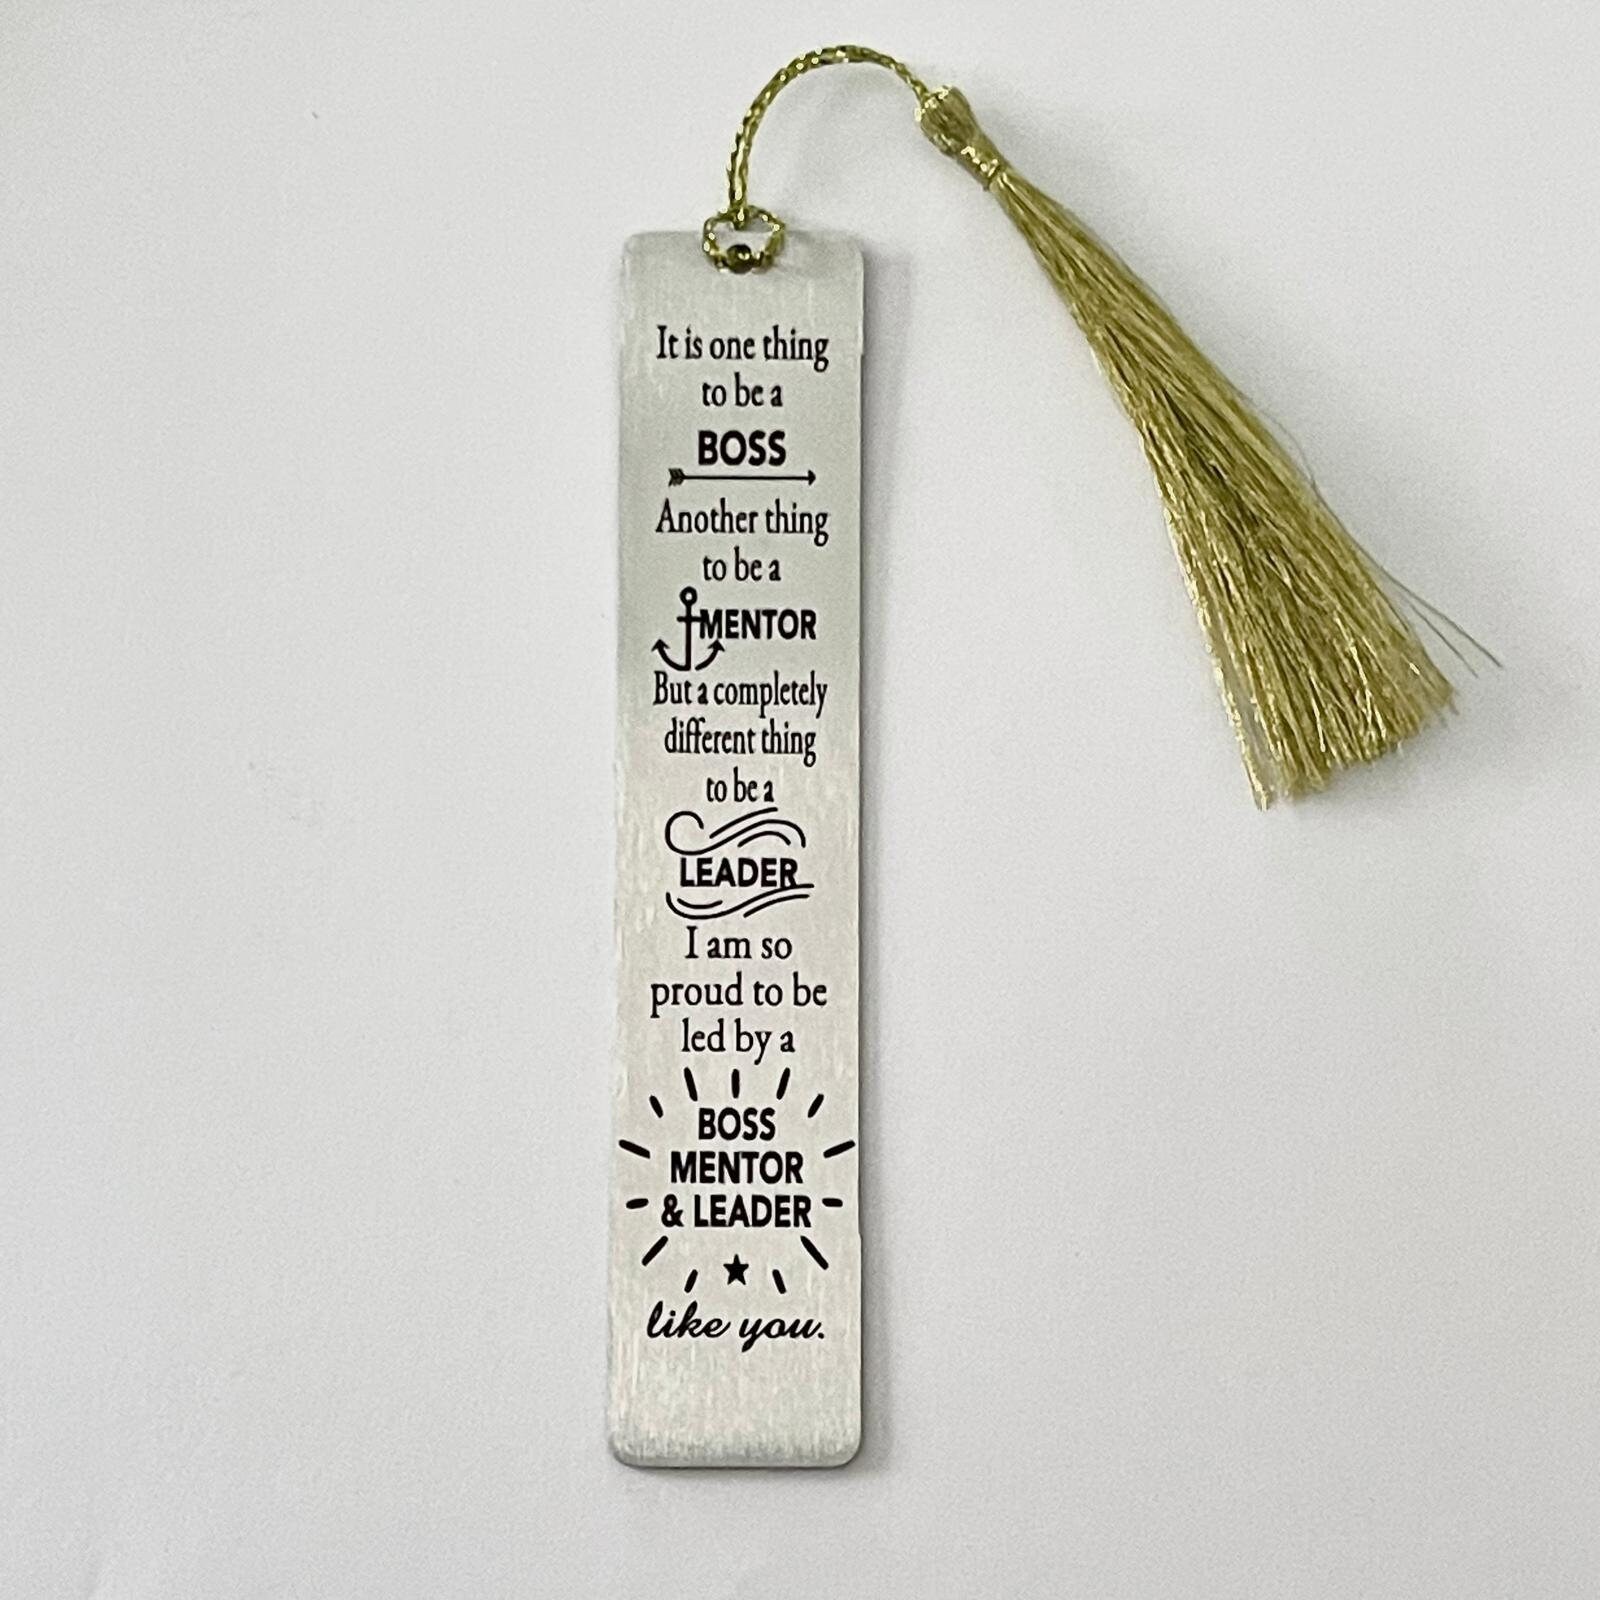 It is one thing
to be a
BOSS
Another thing
to be a
MENTOR
But a completely
different thing
to be a
LEADER
I am so
proud to be
led by a
BOSS
MENTOR
& LEADER
like you.